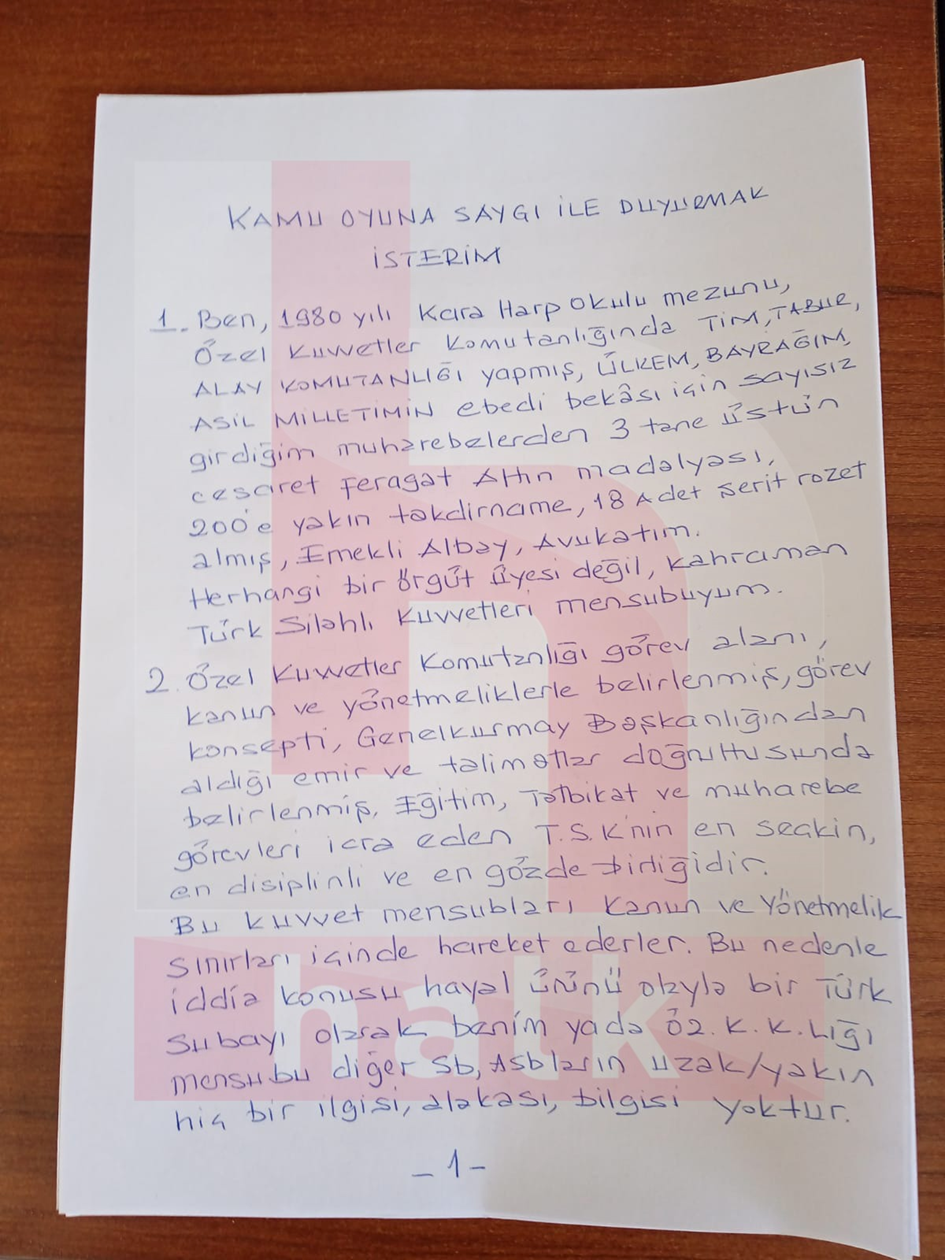 KAMU OYUNA SAYGI İLE DUYURMAK
İSTERİM
1. Ben, 1980 yılı Kara Harp okulu mezunu,
Özel Kuvvetler Komutanlığında TİM, TABUR,
ALAY KOMUTANLIĞI yapmış, ÜLKEM, BAYRAĞIM,
ASİL MİLLETİMİN ebedi bekâsı için sayısız
girdiğim muharebelerden 3 tane üstün
cesaret feragat Altın madalyası,
200'e yakın takdirname, 18 Adet şerit rozet
almış, Emekli Albay, Avukatım.
Herhangi bir örgüt üyesi değil, kahraman
Türk Silahlı Kuvvetleri mensubuyum.
2. Özel Kuvvetler Komutanlığı görev alanı,
kanun ve yönetmeliklerle belirlenmiş, görev
konsepti, Genelkurmay Başkanlığından
aldığı emir ve talimatlar doğrultusunda
belirlenmiş, Eğitim, Tatbikat ve muharebe
görevleri icra eden T.S.K'nin en seçkin,
en disiplinli ve en gözde birliğidir.
Bu kuvvet mensubları kanun ve Yönetmelik
sınırları içinde hareket ederler. Bu nedenle
iddia konusu hayal ürünü olayla bir Türk
subayı olarak benim yada Öz. K. K. Lığı
mensubu diğer Sb, Asbların uzak/yakın
hiç bir ilgisi, alakası, bilgisi yoktur.
-1-
h
halk